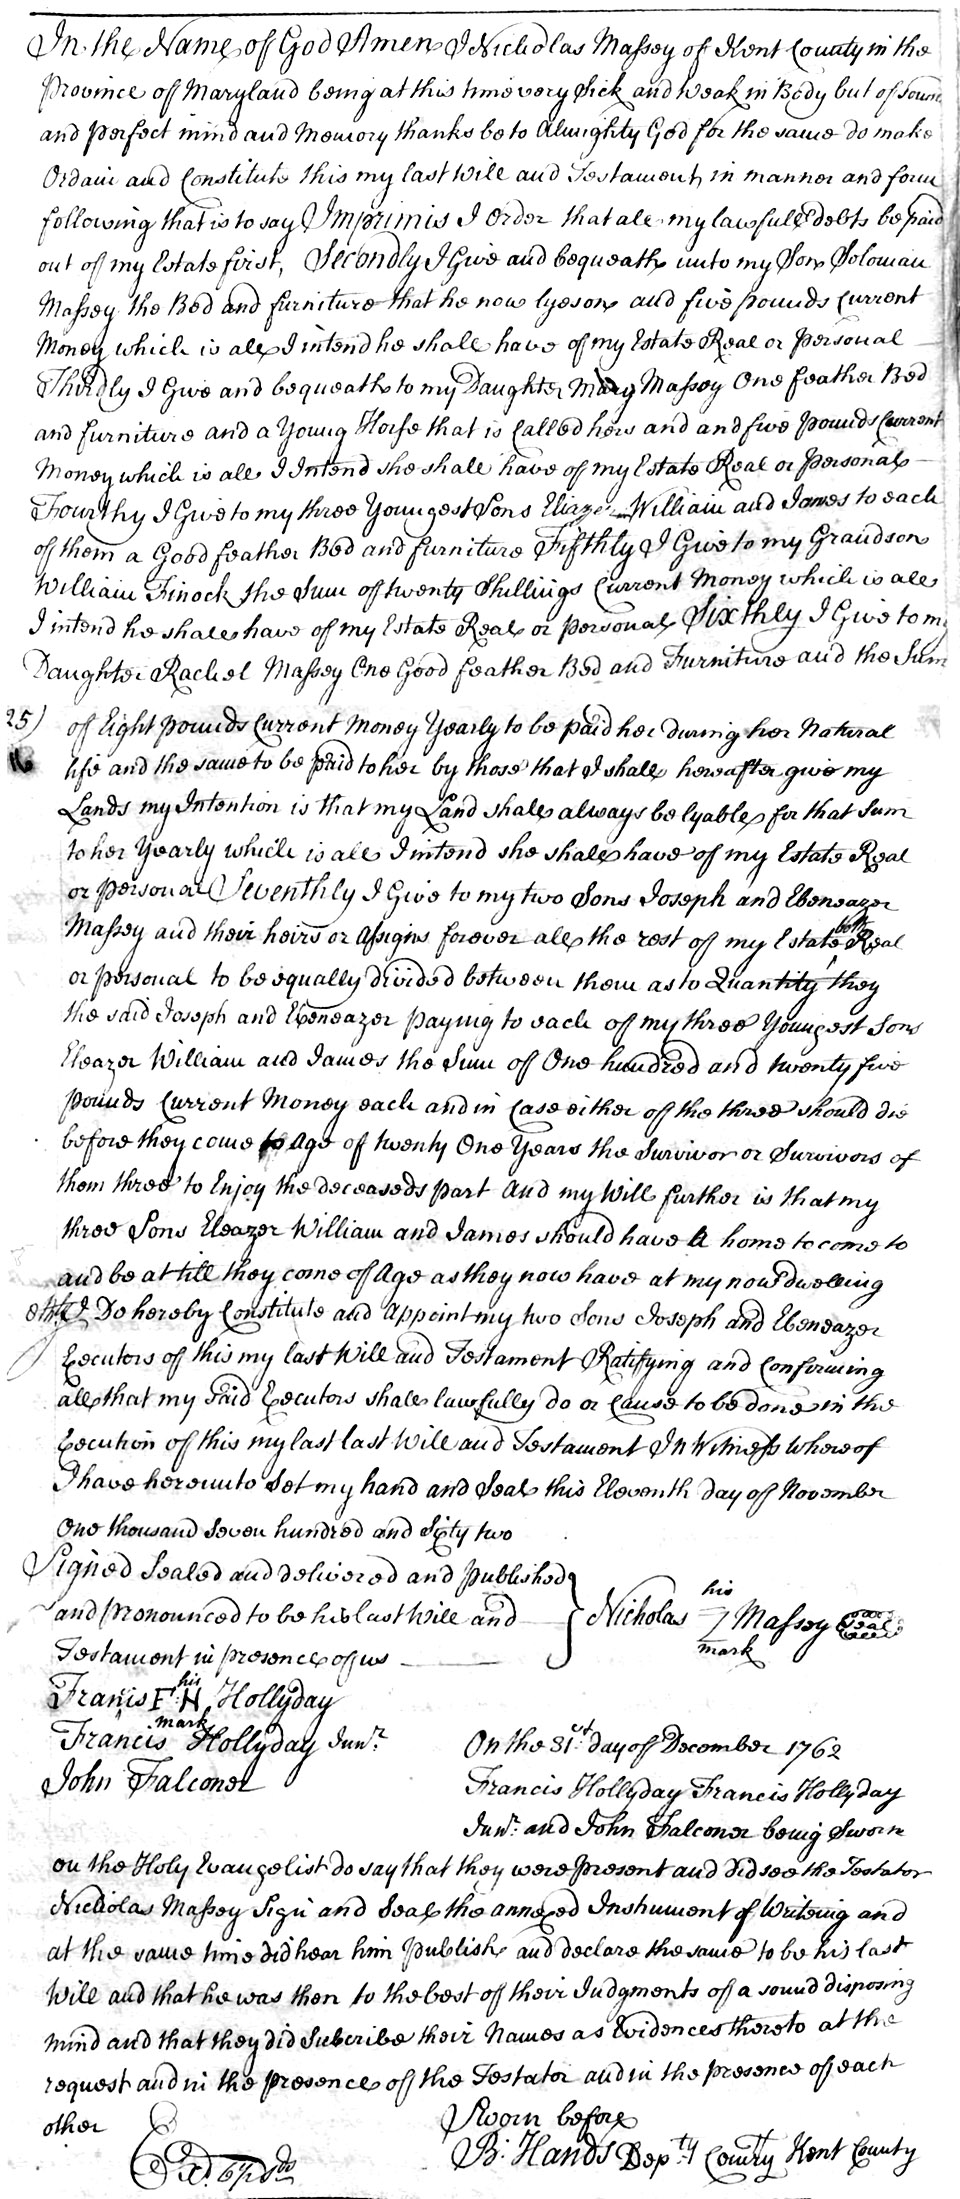 In the Name of God Amen I Nicholas Massey of Kent County in the
Province of Maryland being at this time very Sick and Weak in Body but of Sound
and perfect mind and Memory thanks be to Almighty God for the same do make
Ordain and Constitute this my last Will and Testament, in manner and form
following that is to say Imprimis I Order that all my lawfull debts be paid
out of my Estate first, Secondly I Give and bequeath unto my Son Soloman
Massey the Bed and furniture that he now lyes on and five pounds Current
Money which is all I intend he shall have of my Estate Real or Personal
Thirdly I Give and bequeath to my Daughter Mary Massey One feather Bed
and furniture and a Young Horse that is Called hers and and five Pounds Current
Money which is all I Intend she shall have of my Estate Real or Personal
Fourthy I Give to my three Youngest Sons Eliazer William and James to each
of them a Good feather Bed and furniture Fifthly I Give to my Grandson
William Finock the Sum of twenty Shillings Current Money which is all
I intend he shall have of my Estate Real or personal Sixthly I Give to my
Daughter Rachel Massey One Good feather Bed and Furniture and the Sum
25) of Eight pounds Current Money Yearly to be paid her during her Natural
life and the same to be paid to her by those that I shall hereafter give my
Lands my Intention is that my Land shall always be lyable for that Sum
to her Yearly which is all I intend she shall have of my Estate Real
or personal Seventhly I Give to my two Sons Joseph and Ebeneazer
Massey and their heirs or Assigns forever all the rest of my Estate both Real
or personal to be equally divided between them as to Quantity they
the said Joseph and Ebeneazer paying to each of my three Youngest Sons
Eleazer William and James the Sum of One hundred and twenty five
pounds Current Money each and in Case either of the three should die
before they come to Age of twenty One Years the Survivor or Survivors of
them three to Enjoy the deceaseds part And my Will further is that my
three Sons Eleazer William and James should have A home to come to
and be at till they come of Age as they now have at my now dwelling
I Do hereby Constitute and Appoint my two Sons Joseph and Ebeneazer
Executors of this my last Will and Testament Ratifying and Confirming
all that my Said Executors shall lawfully do or Cause to be done in the
Execution of this my last last Will and Testament In Witness Whereof
I have hereunto Set my hand and Seal this Eleventh day of November
One thousand Seven hundred and Sixty two
Signed Sealed and delivered and published
and pronounced to be his last Will and
Testament in presence of us
his
Nicholas 7 Massey Seal
mark
his
Franis F:H Hollyday
mark
Francis Hollyday Junr.
John Falconer
On the 31st. day of December 1762
Francis Hollyday Francis Hollyday
Junr. and John Falconer being Sworn
on the Holy Evangelist do say that they were Present and did see the Testator
Nicholas Massey Sign and Seal the annexed Instrument of Writeing and
at the same time did hear him publish and declare the same to be his last
Will and that he was then to the best of their Judgments of a sound disposing
mind and that they did Subcribe their Names as Evidences thereto at the
request and in the presence of the Testator and in the presence of each
other
Sworn before
B: Hands Depty Comry Kent County